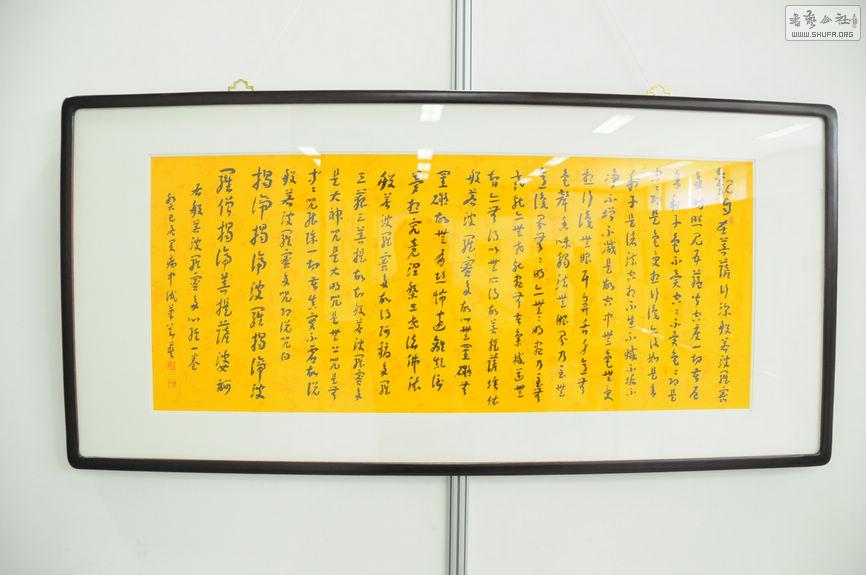 觀自在菩薩行深般若波羅蜜
多時照見五蘊皆空度一切苦厄
舍利子色不異空空不異色色即是
空空即是色受想行識亦復如是舍
利子是諸法空相不生不滅不垢不
淨不增不減是故空中無色無受
想行識無眼耳鼻舌身意無
色聲香味觸法無眼界乃至無
意識界無無明亦無無明盡乃至無
老死亦無老死盡無苦集滅道無
智亦無得以無所得故菩提薩埵依
般若波羅蜜多故心無罣礙無
罣礙故無有恐怖遠離顛倒
夢想究竟涅槃三世諸佛依
般若波羅蜜多故得阿耨多羅
三藐三菩提故知般若波羅蜜多
是大神咒是大明咒是無上咒是無
等等咒能除一切苦真實不虛故說
般若波羅蜜多咒即說咒曰
揭諦揭諦波羅揭諦波
羅僧揭諦菩提薩婆訶
右般若波羅蜜多心經一卷
癸巳之夏
書藝公社
WWW.SHUFA.ORG